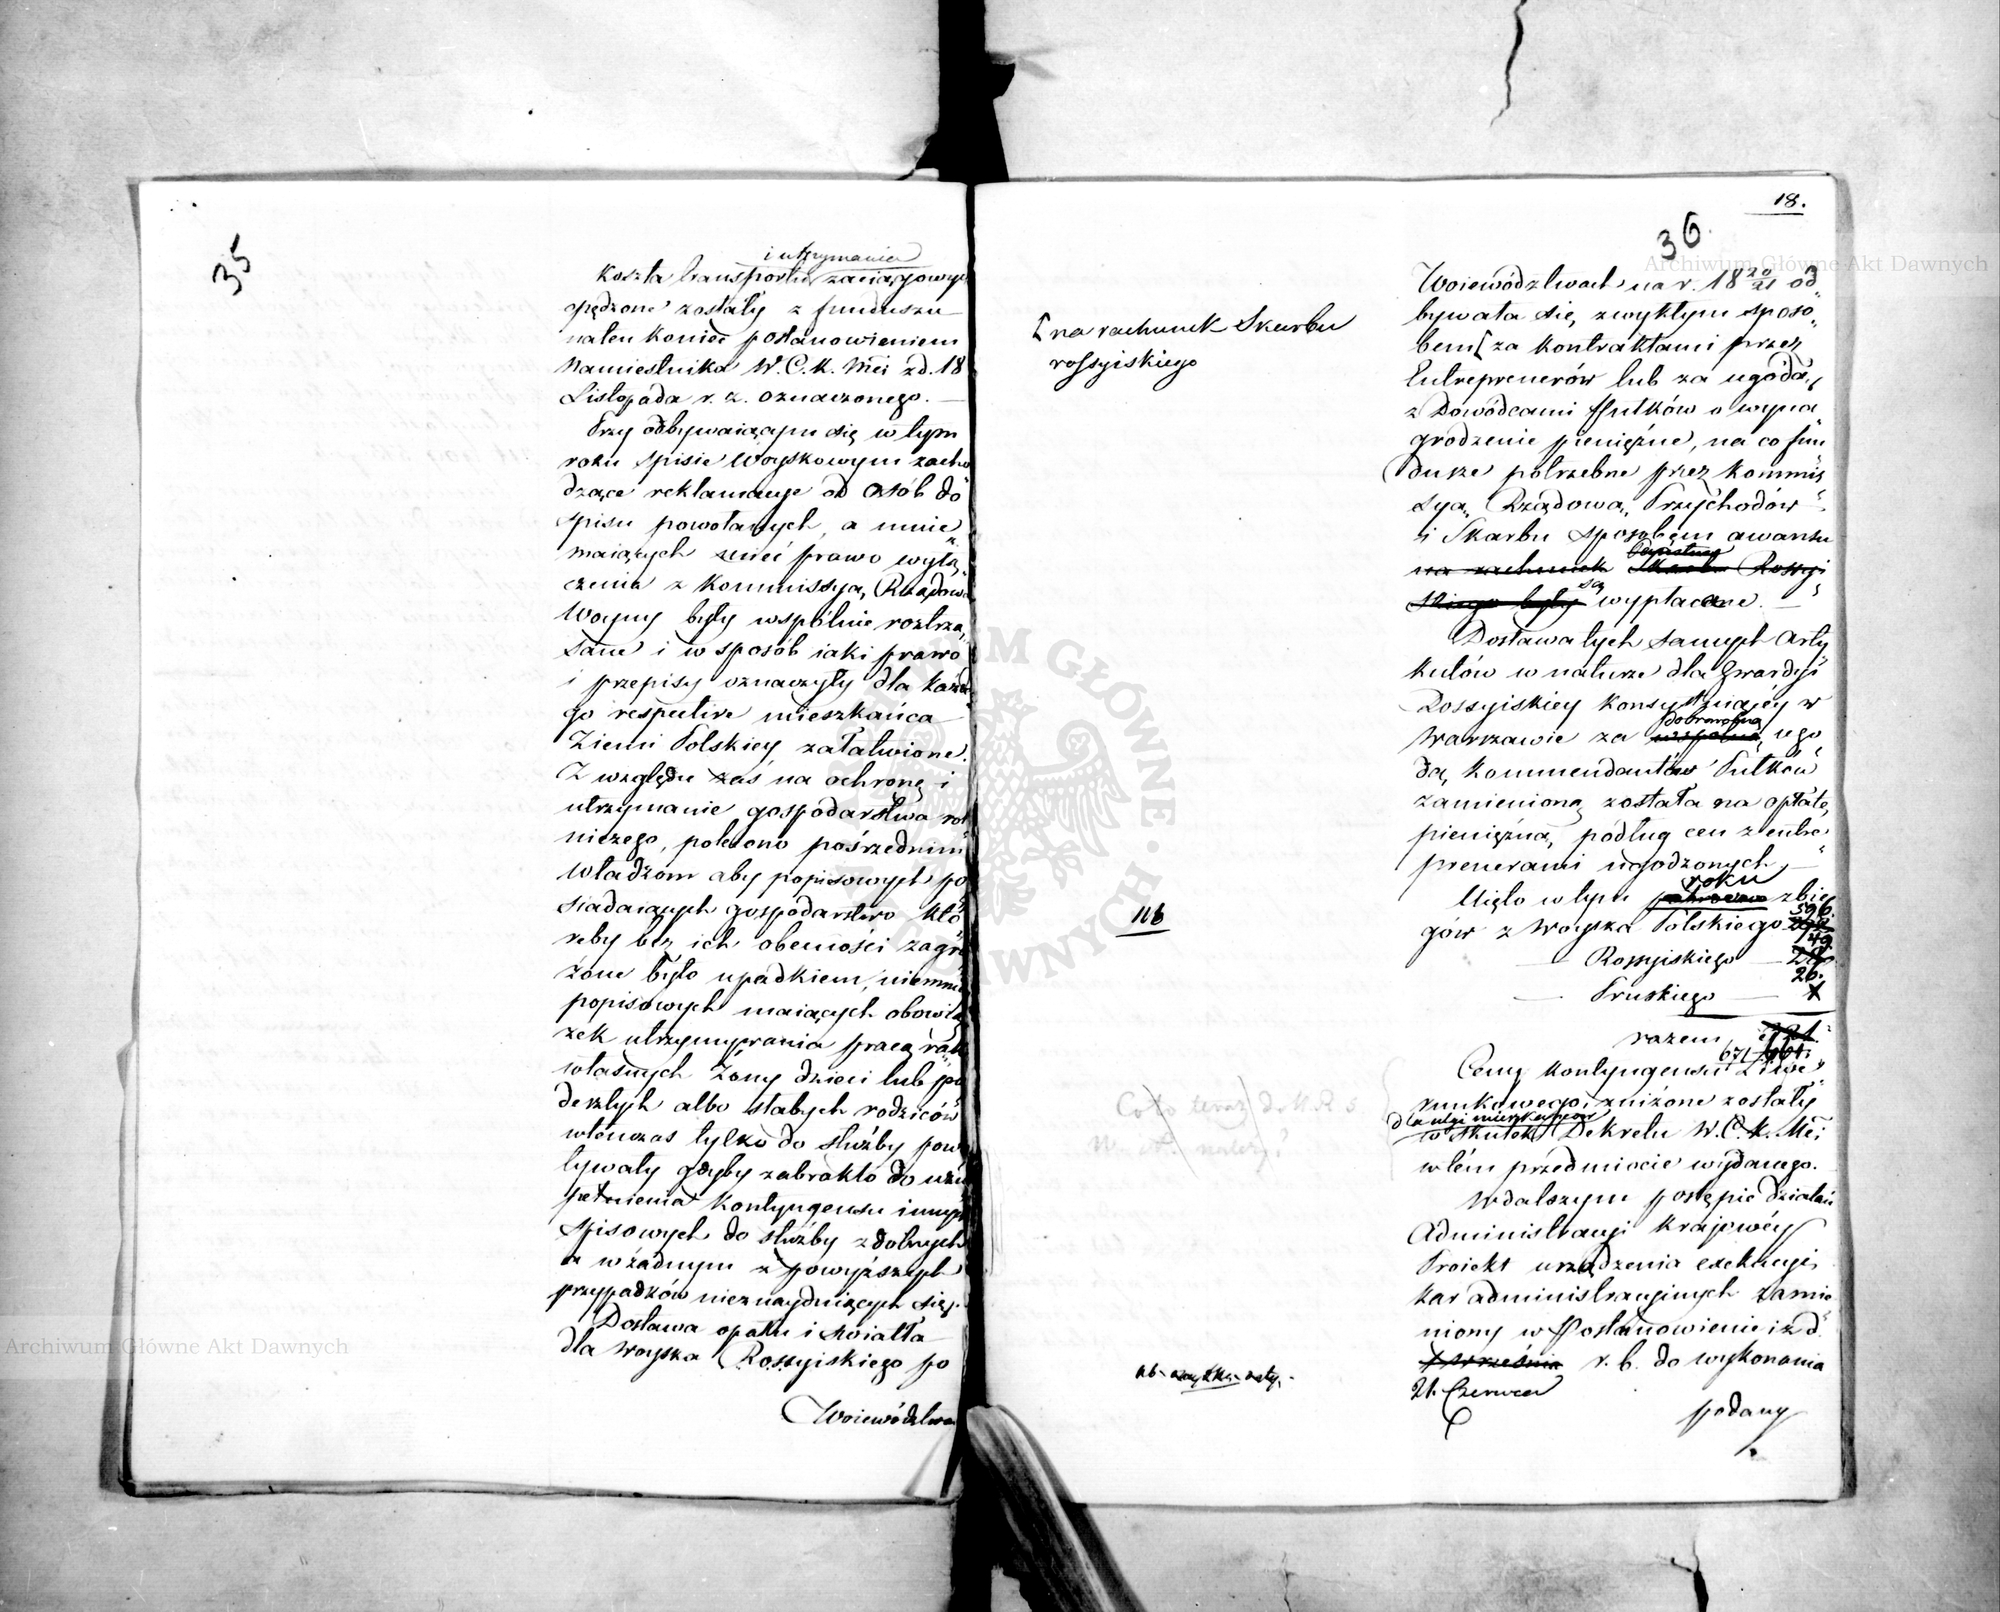 35
i utrzymania
koszta transportu zaciągowych
opędzone zostały z funduszu
naten koniec postanowieniem
Namiestnika W. C. K. Mći zd. 18
Listopada r. z. oznaczonego. —
Przy odbywaiącym się w tym
roku spisie Woyskowym zacho
dzące reklamacye od osób do
spisu powołanych, a mnie„
maiących mieć prawo wyłą„
czenia z Kommissyą Rządową
Woyny były wspólnie roztrzą„
sane i w sposób iaki prawo
i przepisy oznaczyły dla każde
go respective mieszkańca
Ziemi Polskiey załatwione.
Z względu zaś na ochronę i
utrzymanie gospodarstwa rol
niczego, polecono pośrzednim
władzom aby popisowych po
siadaiących gospodarstwo któ
reby bez ich obecności zagro
żone było upadkiem, niemniey
popisowych maiących obowią
zek utrzymywania pracą rąk
własnych żony dzieci lub po
deszłych albo słabych rodziców
wtenczas tylko do służby powo
ływały gdyby zabrakło do uzu
pełnienia kontyngensu innych
spisowych do służby zdolnych
a w żadnym z powyższych
przypadków nieznayduiących się.
Dostawa opału i światła
dla Woyska Rossyiskiego po
Woiewództwa
18.
36.
[na rachunek Skarbu
rossyiskiego
Woiewództwach na r. 18 20/21 od
bywała się, zwykłym sposo„
bem [za kontraktami przez
Entreprenerów lub za ugodą„
z Dowódcami Pułków o wyna„
grodzenie pieniężne, na co fun
dusze potrzebne przez Kommis
syą Rządową Przychodów
i Skarbu sposobem awansu
na rachunek Skarbu Rossyi
skiego były są wypłacane. —
Dostawa tych samych Arty
kułów w naturze dla Gwardyi
Rossyiskiey konsystuiącéy w
dobrowolną
Warszawie za wspólną ugo
dą Kommendantów Pułków
zamienioną została na opłatę
pieniężną, podług cen z entre
prenerami ugodzonych, —
roku
116
Uięto w tym zbie
596.
gów z Woyska Polskiego
149
— Rossyiskiego —
26.
— Pruskiego —
razem
671
Ceny kontyngensu Liwe„
runkowego, zniżone zostały
dla ulgi mieszkańców
w skutek Dekretu W. C. K. Mći
w tém przedmiocie wydanego.
Co to teraz do K R S
W dalszym postępie działań
Administracyi Kraiowéy
Proiekt urządzenia exekucyi
kar administracyinych zamie
niony w Postanowienie i z d.
Września r. b. do wykonania
21. Czerwca
podany